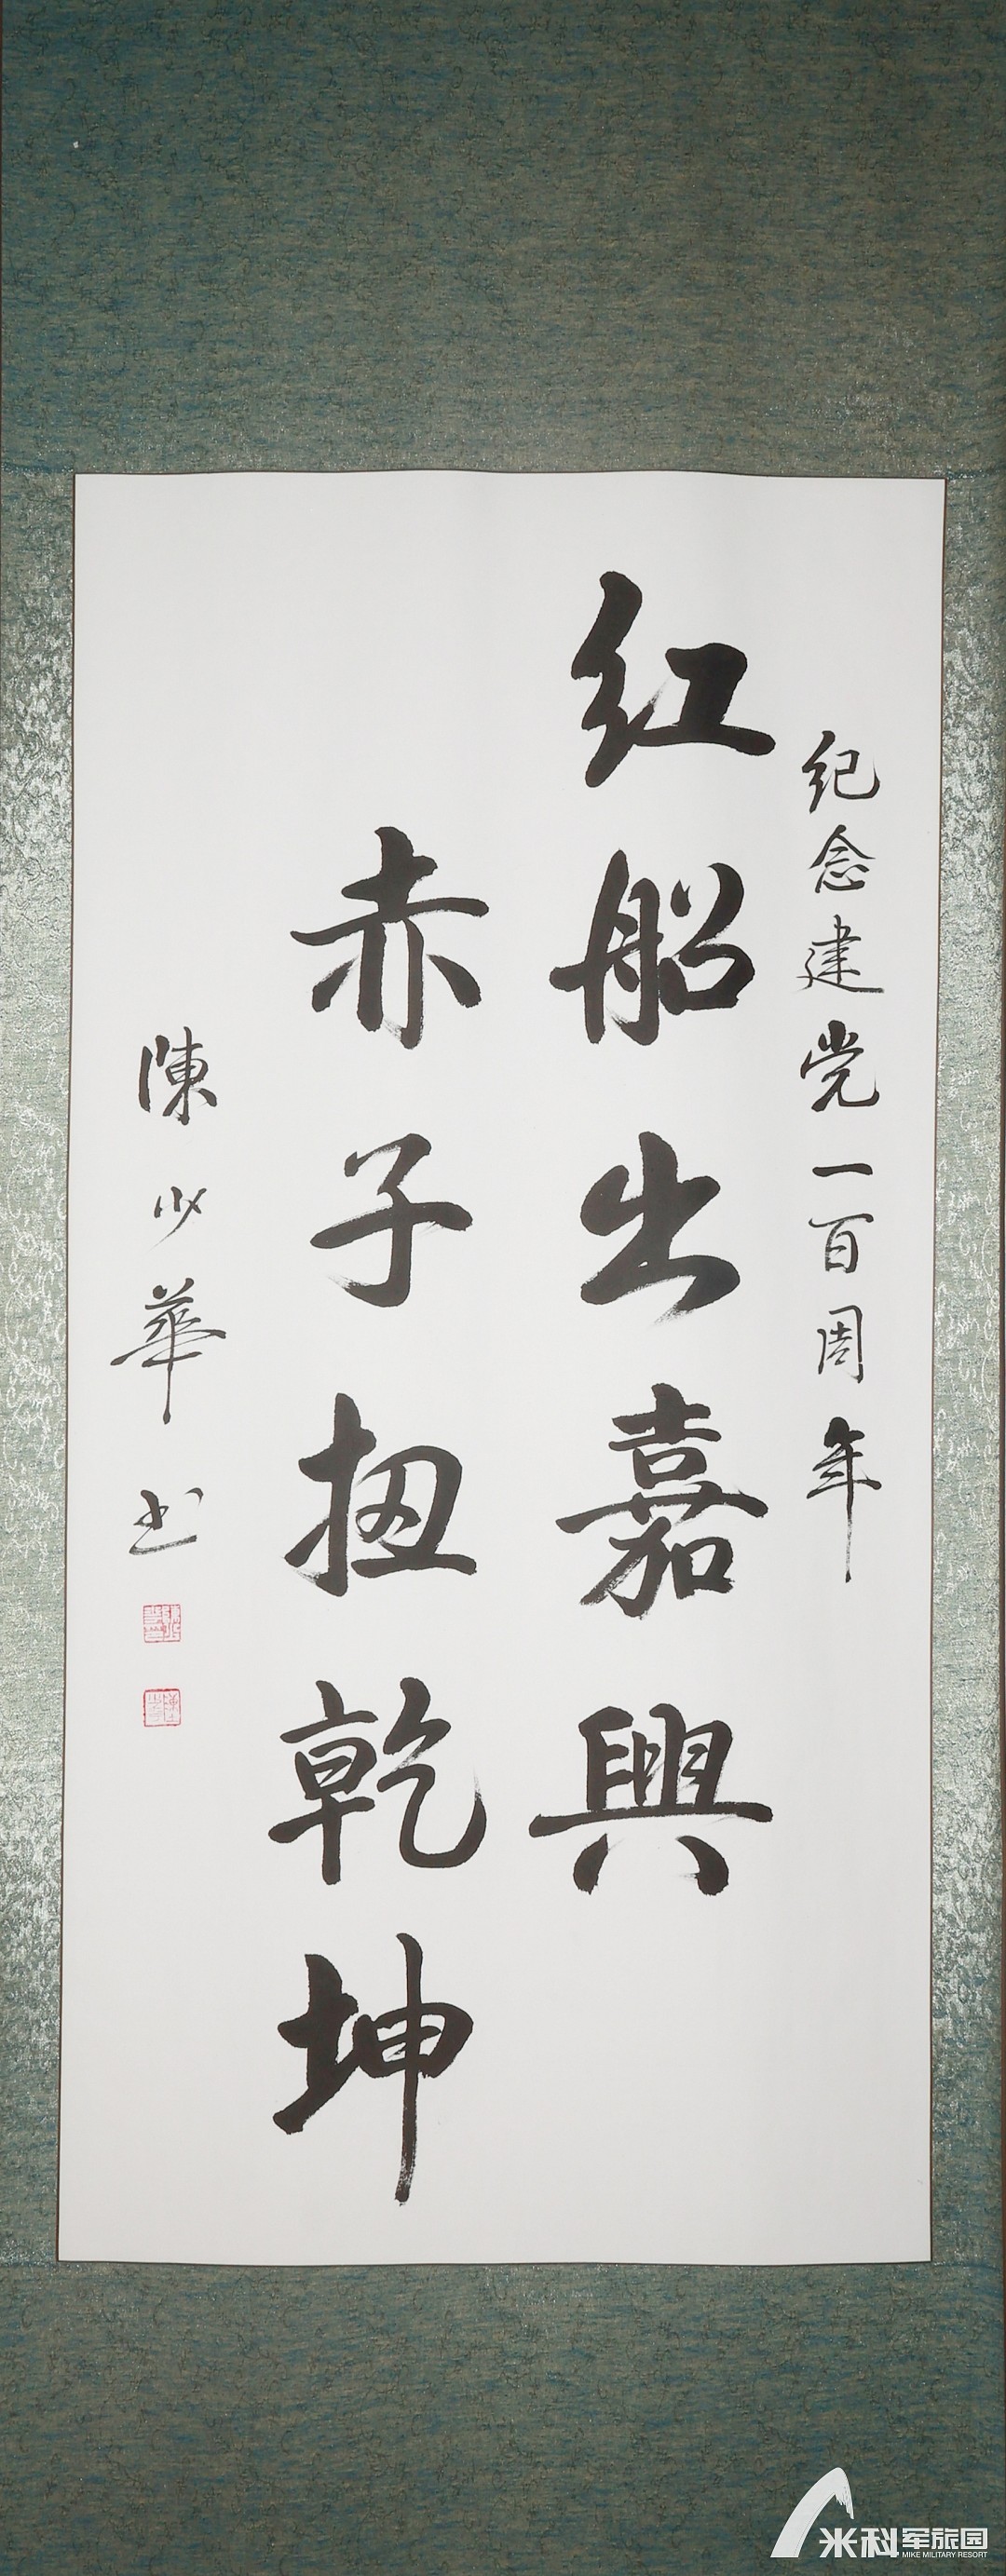 纪念建党一百周年
红船出嘉興
赤子扭乾坤
陳少華书
米科军旅园
MIKE MILITARY RESORT